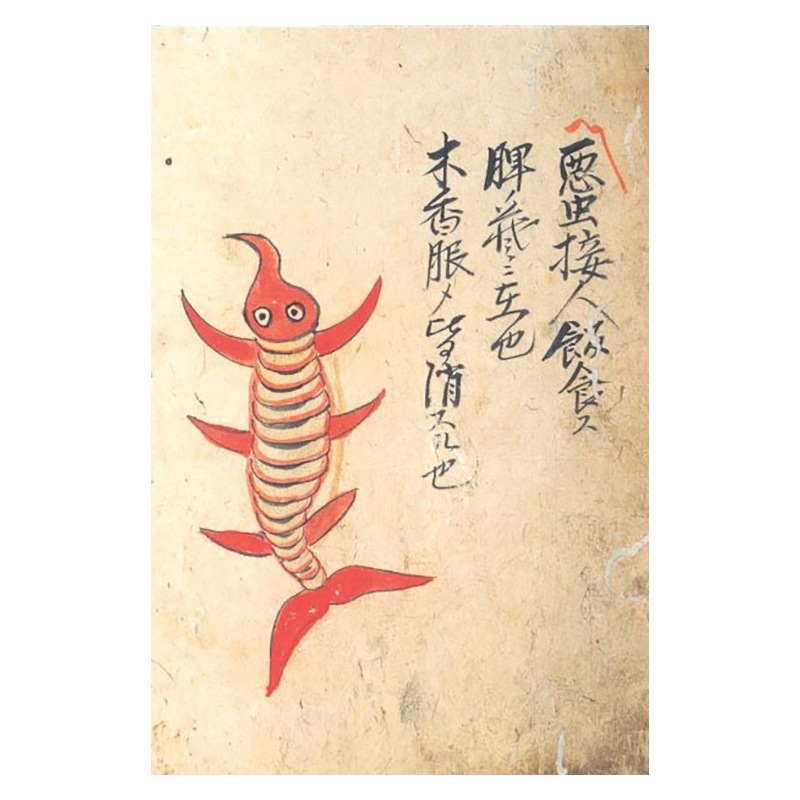 悪虫接人飯食ス
脾ノ蔵ニ在也
木香服メ皆消スル也